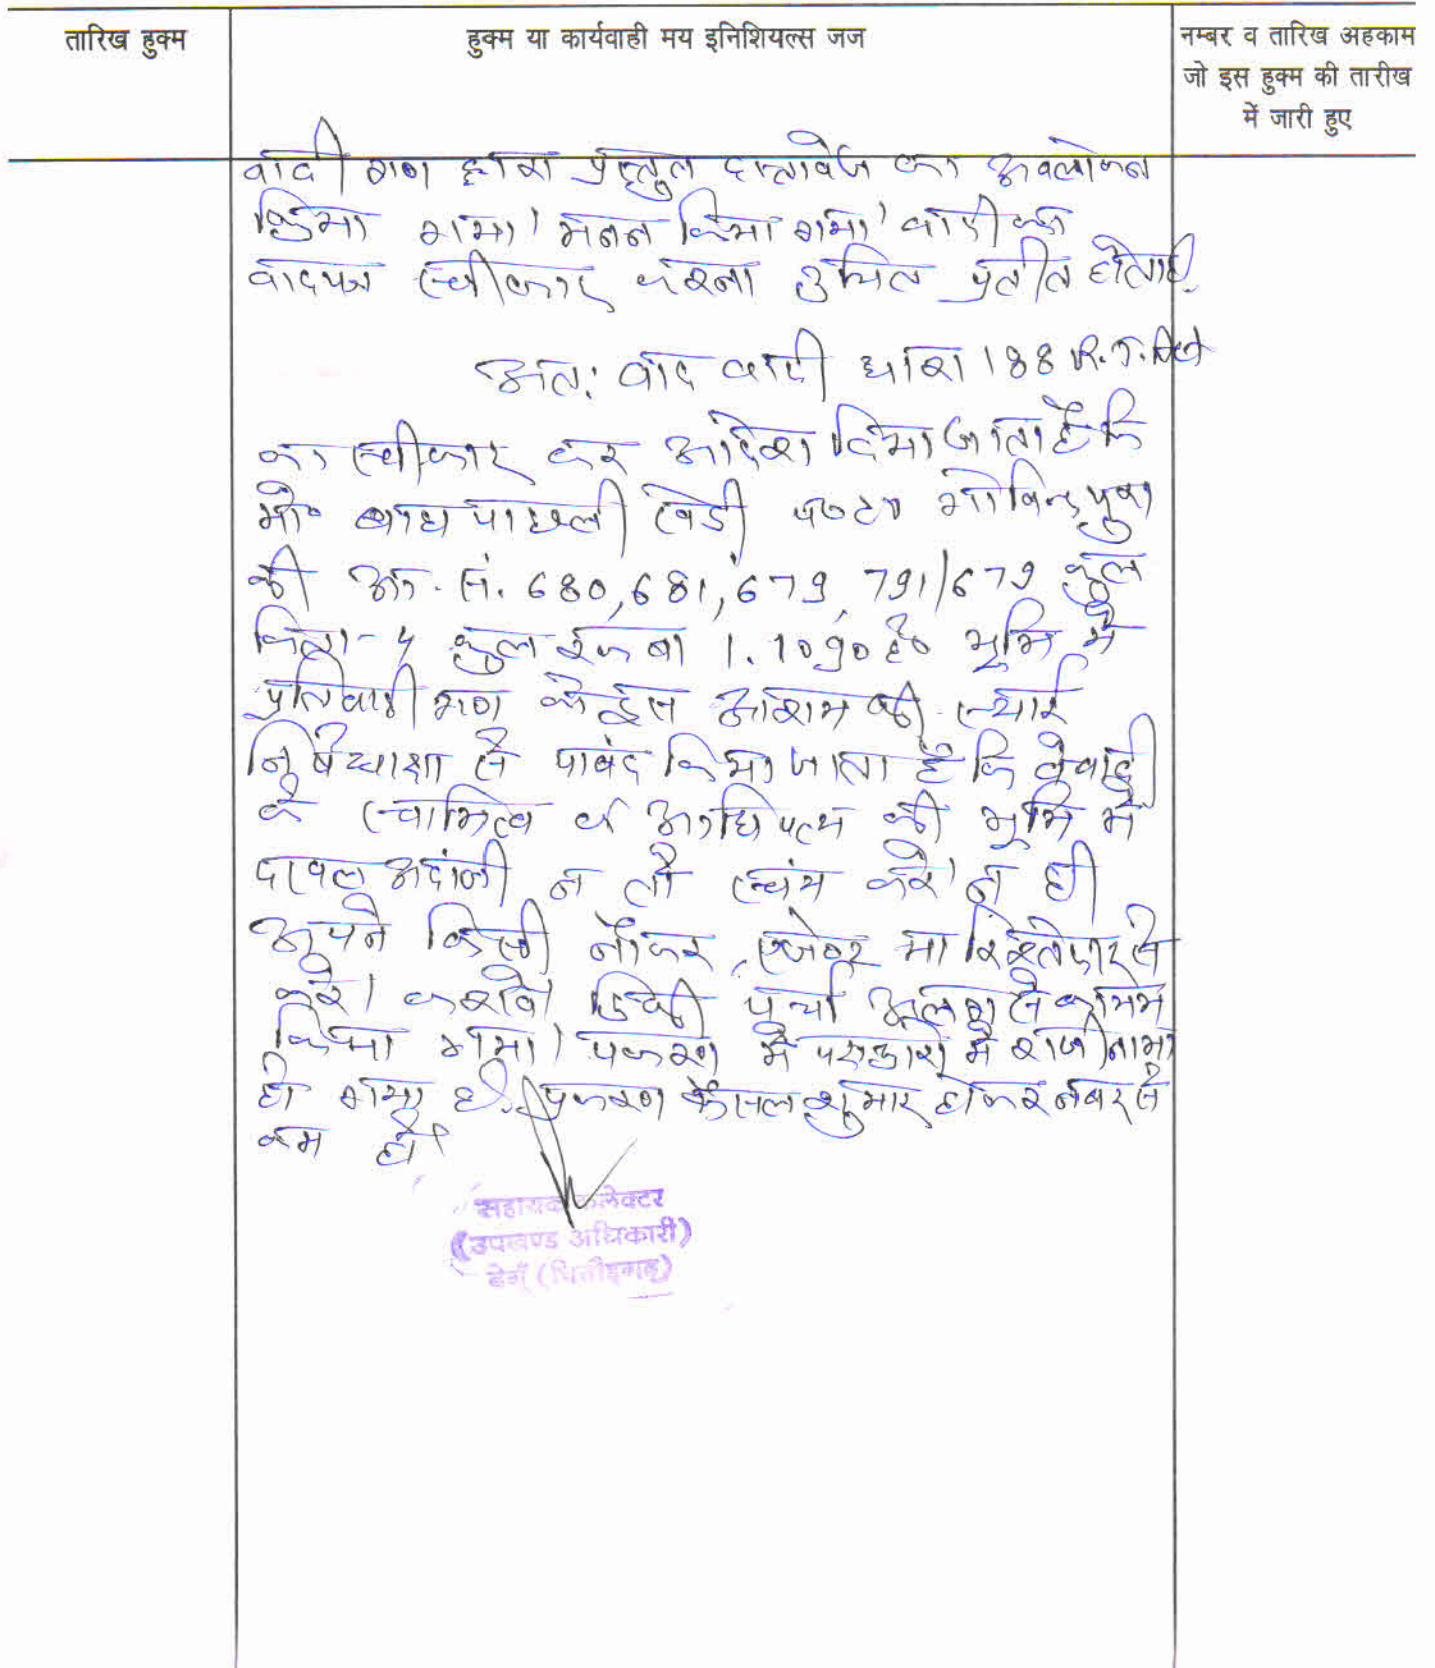 तारिख हुक्म
हुक्म या कार्यवाही मय इनिशियल्स जज
नम्बर व तारिख अहकाम
जो इस हुक्म की तारीख
में जारी हुए
वादी गण द्वारा प्रस्तुत दस्तावेज का अवलोकन
किया गया। मनन किया गया। वादी का
वादपत्र स्वीकार करना उचित प्रतीत होता है.
अतः वाद वादी धारा 188 R.T.
का स्वीकार कर आदेश दिया जाता है कि
मौ० खेडी प०ह० गोविन्दपुरा
की आ. सं. 680, 681, 679, 791/679 कुल
किता- कुल रकबा 1. है० भूमि में
प्रतिवादी गण को इस आशय की स्थाई
निषेधाज्ञा से पाबंद किया जाता है कि वे वादी
के स्वामित्व व आधिपत्य की भूमि में
दखल अदांजी न तो स्वंय करे। न ही
अपने किसी नौकर, एजेण्ट या रिश्तेदार से
करे। करावे। डिक्री पर्चा अलग से कायम
किया गया। प्रकरण में पक्षकारो में राजीनामा
हो गया है. प्रकरण फैसल शुमार होकर नंबर से
कम हो।
सहायक कलेक्टर
(उपखण्ड अधिकारी)
बेगूँ (चित्तौड़गढ़)